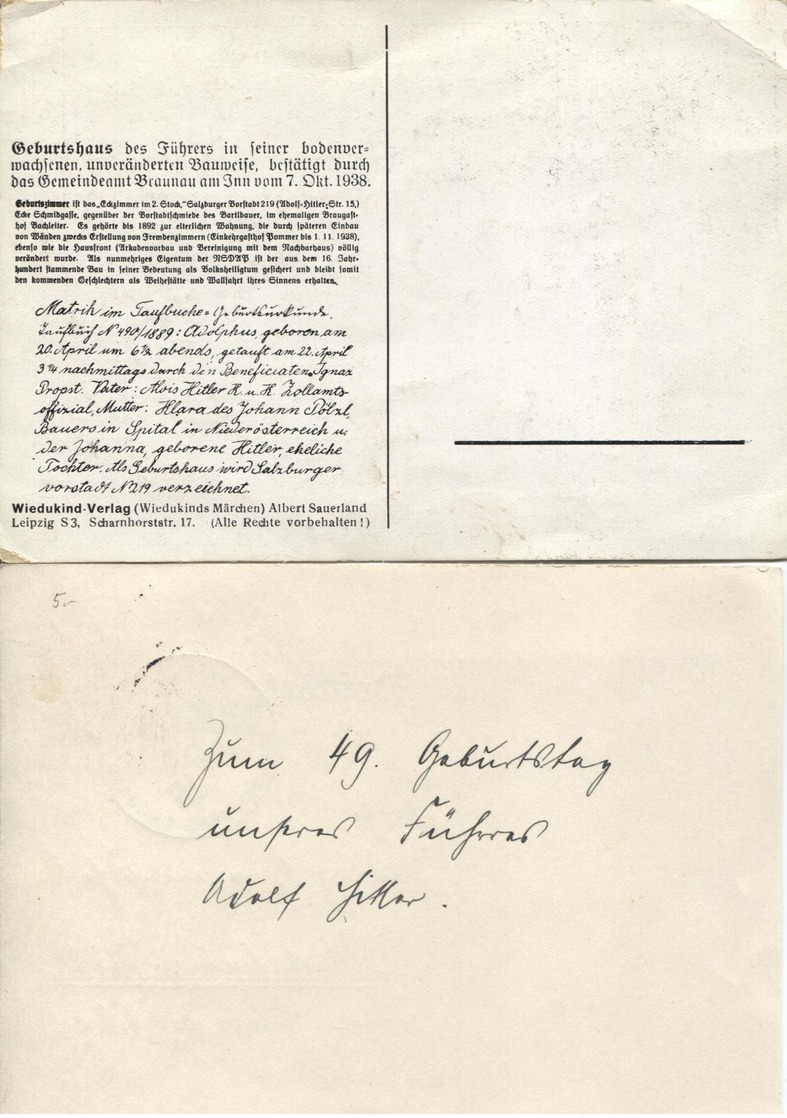 Geburtshaus des Führers in seiner bodenver=
wachsenen, unveränderten Bauweise, bestätigt durch
das Gemeindeamt Braunau am Inn vom 7. Okt. 1938.
Geburtszimmer ist das „Eckzimmer im 2. Stock," Salzburger Vorstadt 219 (Adolf-Hitler-Str. 15,)
Ecke Schmidgasse, gegenüber der Vorstadtschmiede des Bartlbauer, im ehemaligen Braugast-
hof Bachleiter. Es gehörte bis 1892 zur elterlichen Wohnung, die durch späteren Einbau
von Wänden zwecks Erstellung von Fremdenzimmern (Einkehrgasthof Pommer bis 1. 11. 1938),
ebenso wie die Hausfront (Arkadenvorbau und Vereinigung mit dem Nachbarhaus) völlig
verändert wurde. Als nunmehriges Eigentum der NSDAP ist der aus dem 16. Jahr-
hundert stammende Bau in seiner Bedeutung als Volksheiligtum gesichert und bleibt somit
den kommenden Geschlechtern als Weihestätte und Wallfahrt ihres Sinnens erhalten.
Matrik im Taufbuche = Geburtsurkunde.
Taufbuch № 490/1889: Adolphus, geboren am
20. April um 6½ abends, getauft am 22. April
3¼ nachmittags durch den Beneficiaten Ignaz
Propst. Vater: Alois Hitler K. u. K. Zollamts-
offizial, Mutter: Klara des Johann Pölzl,
Bauers in Spital in Niederösterreich u.
der Johanna, geborene Hitler, eheliche
Tochter. Als Geburtshaus wird Salzburger
vorstadt № 219 verzeichnet.
Wiedukind-Verlag (Wiedukinds Märchen) Albert Sauerland
Leipzig S 3, Scharnhorststr. 17. (Alle Rechte vorbehalten!)
5,-
Zum 49. Geburtstag
unseres Führers
Adolf Hitler.